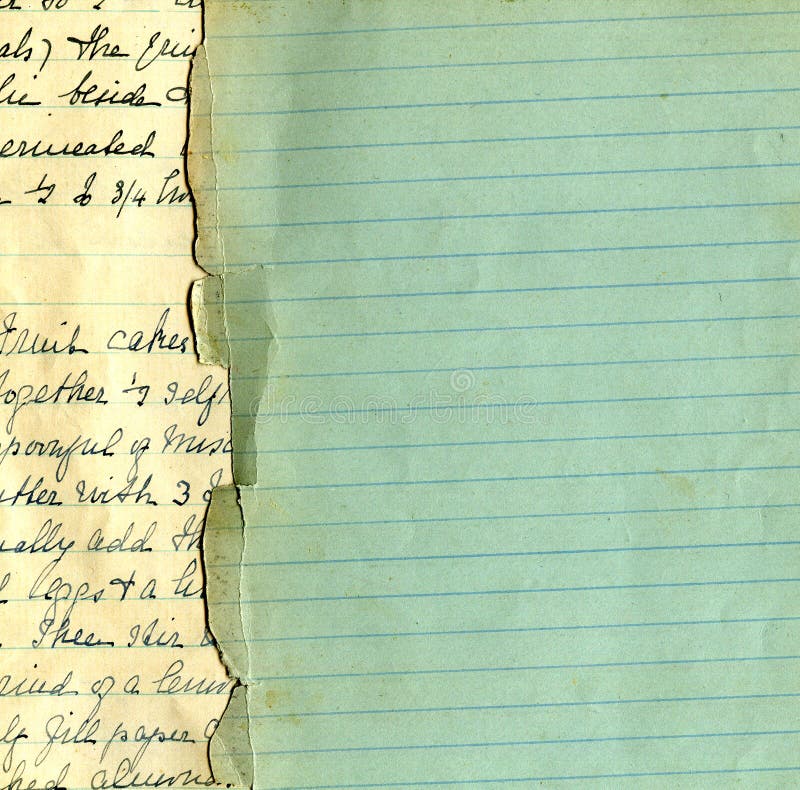 als) The frui
lie beside &
ermeated
½ to 3/4 ho
Fruit cakes
together ½ self
spoonful of Misc
utter with 3
ually add th
eggs & a
. Then stir
rind of a lemo
lf fill paper
hed almond.
dreamstime